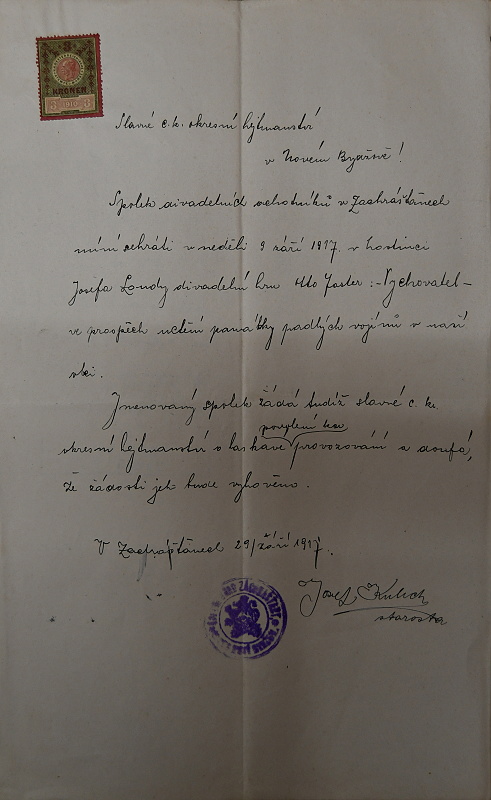 3
KRONEN
3 1910 3
Slavné c.k. okresní hejtmanství
v Novém Bydžově!
Spolek divadelních ochotníků v Zachrášťanech
míní sehráti v neděli 9 září 1917. v hostinci
Josefa Londy divadelní hru Otto Faster:-Vychovatel-
ve prospěch uctění památky padlých vojínů v naší
obci.
Jmenovaný spolek žádá tudíž slavné c. k.
povolení ku
okresní hejtmanství o laskavé provozování a doufá,
že žádosti jeh bude vyhověno.
V Zachrášťanech 29/září 1917.
Josef Kulich
starosta